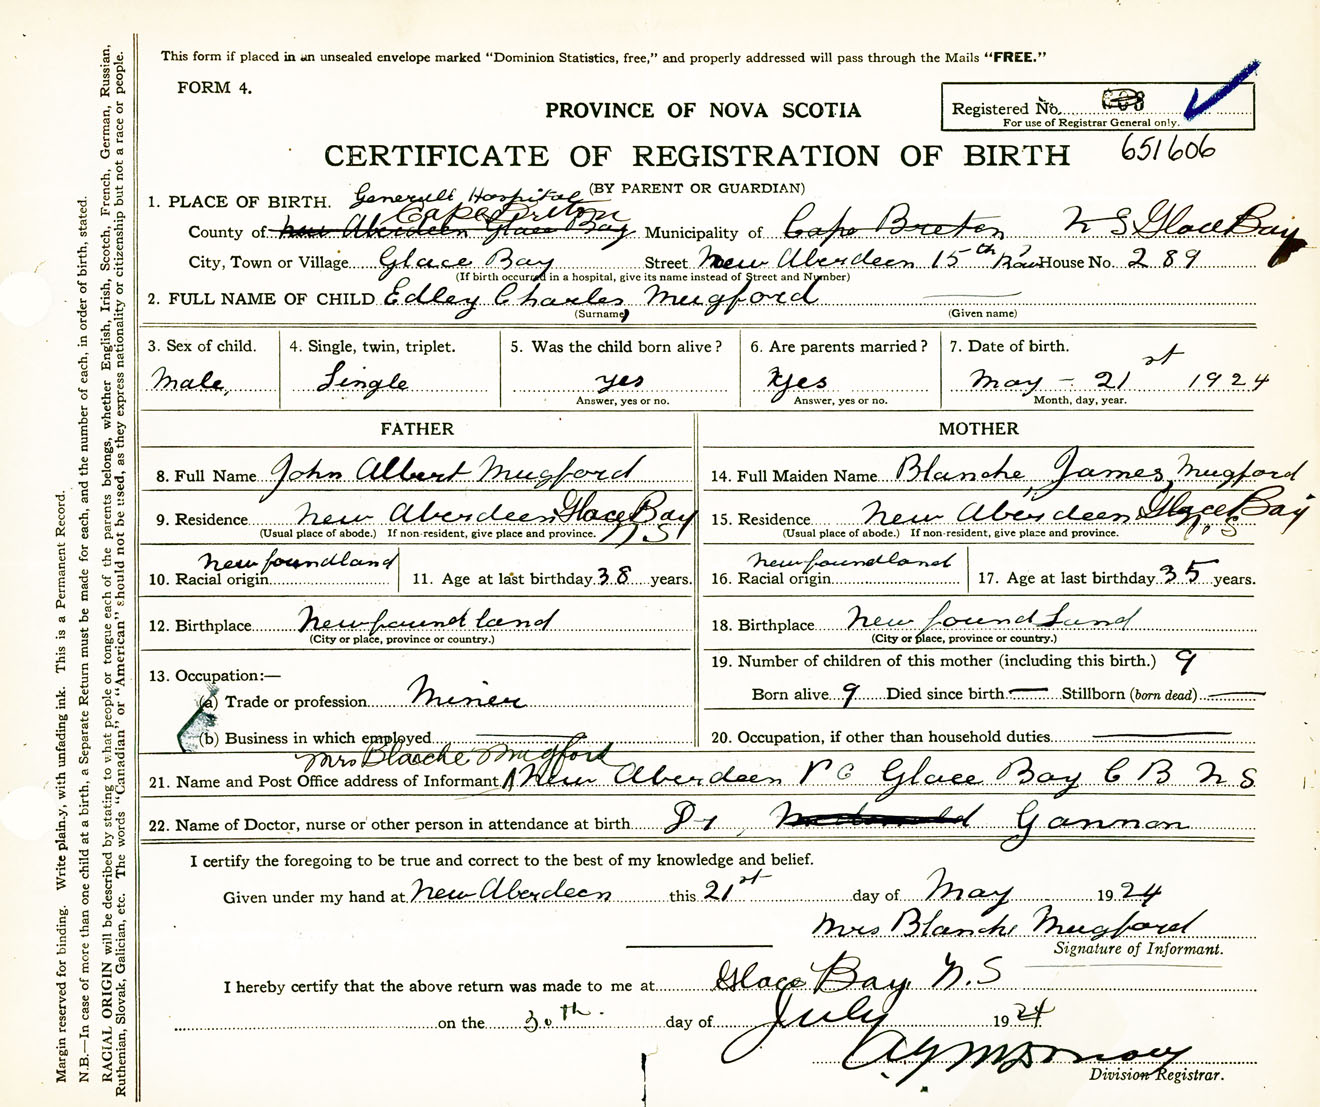 This form if placed in an unsealed envelope marked "Dominion Statistics, free," and properly addressed will pass through the Mails "FREE."
FORM 4.
PROVINCE OF NOVA SCOTIA
Registered No.
For use of Registrar General only.
CERTIFICATE OF REGISTRATION OF BIRTH
651606
(BY PARENT OR GUARDIAN)
1. PLACE OF BIRTH. Generall Hospital
Cape Breton
County of New Aberdeen Glace Bay Municipality of Cape Breton N S Glace Bay
City, Town or Village Glace Bay Street New Aberdeen 15th Row House No. 289
(If birth occurred in a hospital, give its name instead of Street and Number)
2. FULL NAME OF CHILD Edley Charles Mugford
(Surname) (Given name)
3. Sex of child. 4. Single, twin, triplet. 5. Was the child born alive? 6. Are parents married? 7. Date of birth.
Male, Single yes Yes May - 21st 1924
Answer, yes or no. Answer, yes or no. Month, day, year.
FATHER MOTHER
8. Full Name John Albert Mugford 14. Full Maiden Name Blanche, James, Mugford
9. Residence New Aberdeen Glace Bay 15. Residence New Aberdeen Glace Bay
(Usual place of abode.) If non-resident, give place and province. N S (Usual place of abode.) If non-resident, give place and province. N. S
newfoundland newfoundland
10. Racial origin 11. Age at last birthday 38 years. 16. Racial origin 17. Age at last birthday 35 years.
12. Birthplace Newfoundland 18. Birthplace New found Land
(City or place, province or country.) (City or place, province or country.)
19. Number of children of this mother (including this birth.) 9
13. Occupation:—
(a) Trade or profession Miner Born alive 9 Died since birth — Stillborn (born dead) —
(b) Business in which employed 20. Occupation, if other than household duties
Mrs Blanche Mugford
21. Name and Post Office address of Informant New Aberdeen Glace Bay C B N S
22. Name of Doctor, nurse or other person in attendance at birth Dr, Gannon
I certify the foregoing to be true and correct to the best of my knowledge and belief.
Given under my hand at New Aberdeen this 21st day of May 1924
Mrs Blanche Mugford
Signature of Informant.
I hereby certify that the above return was made to me at Glace Bay N. S
on the 30th. day of July 1924
Division Registrar.
Margin reserved for binding. Write plainly, with unfading ink. This is a Permanent Record.
N.B.—In case of more than one child at a birth, a Separate Return must be made for each, and the number of each, in order of birth, stated.
RACIAL ORIGIN will be described by stating to what people or tongue each of the parents belongs, whether English, Irish, Scotch, French, German, Russian,
Ruthenian, Slovak, Galician, etc. The words "Canadian" or "American" should not be used, as they express nationality or citizenship but not a race or people.